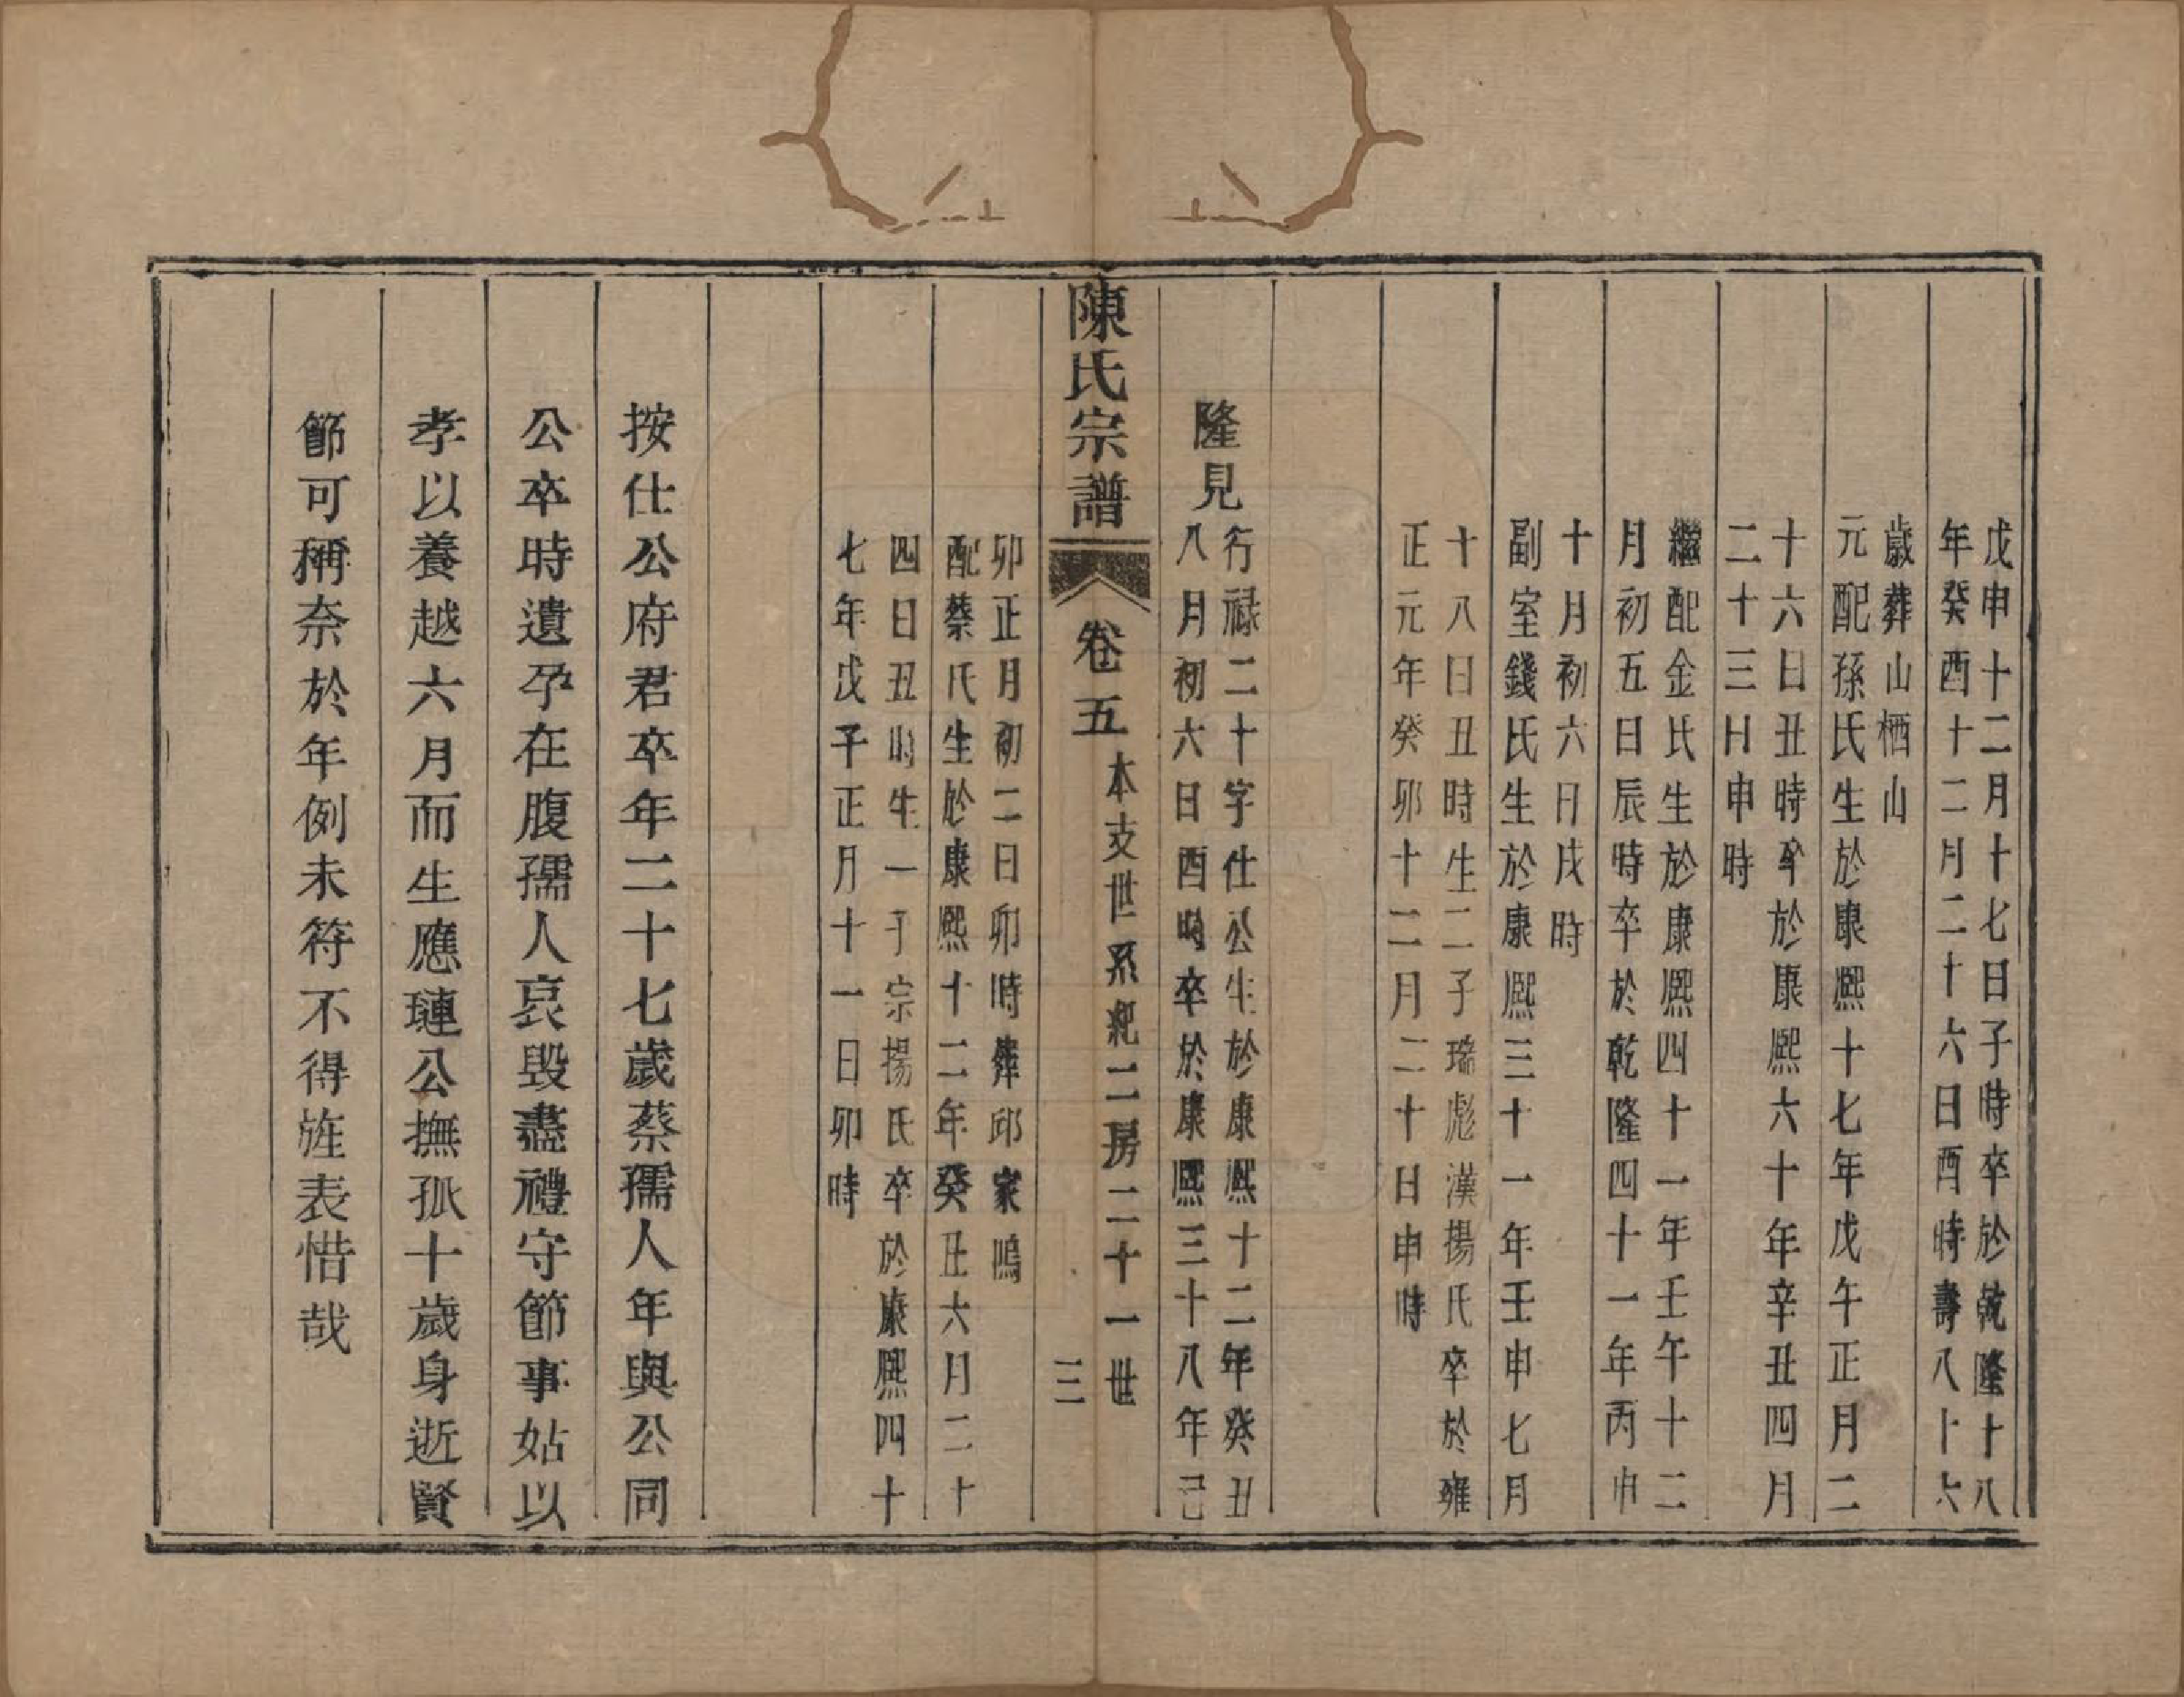 戊申十二月十七日子時卒於乾隆十八
年癸酉十二月二十六日酉時壽八十六
歲葬山栖山
元配孫氏生於康熙十七年戊午正月二
十六日丑時卒於康熙六十年辛丑四月
二十三日申時
繼配金氏生於康熙四十一年壬午十二
月初五日辰時卒於乾隆四十一年丙申
十月初六日戌時
副室錢氏生於康熙三十一年壬申七月
十八日丑時生二子瑞彪漢揚氏卒於雍
正元年癸卯十二月二十日申時
隆見
行祿二十字仕公生於康熙十二年癸丑
八月初六日酉時卒於康熙三十八年己
陳氏宗譜
卷五
本支世系紀二房二十一世
三
卯正月初二日卯時葬邱家塢
配蔡氏生於康熙十二年癸丑六月二十
四日丑時生一子宗揚氏卒於康熙四十
七年戊子正月十一日卯時
按仕公府君卒年二十七歲蔡孺人年與公同
公卒時遺孕在腹孺人哀毀盡禮守節事姑以
孝以養越六月而生應璉公撫孤十歲身逝賢
節可稱奈於年例未符不得旌表惜哉